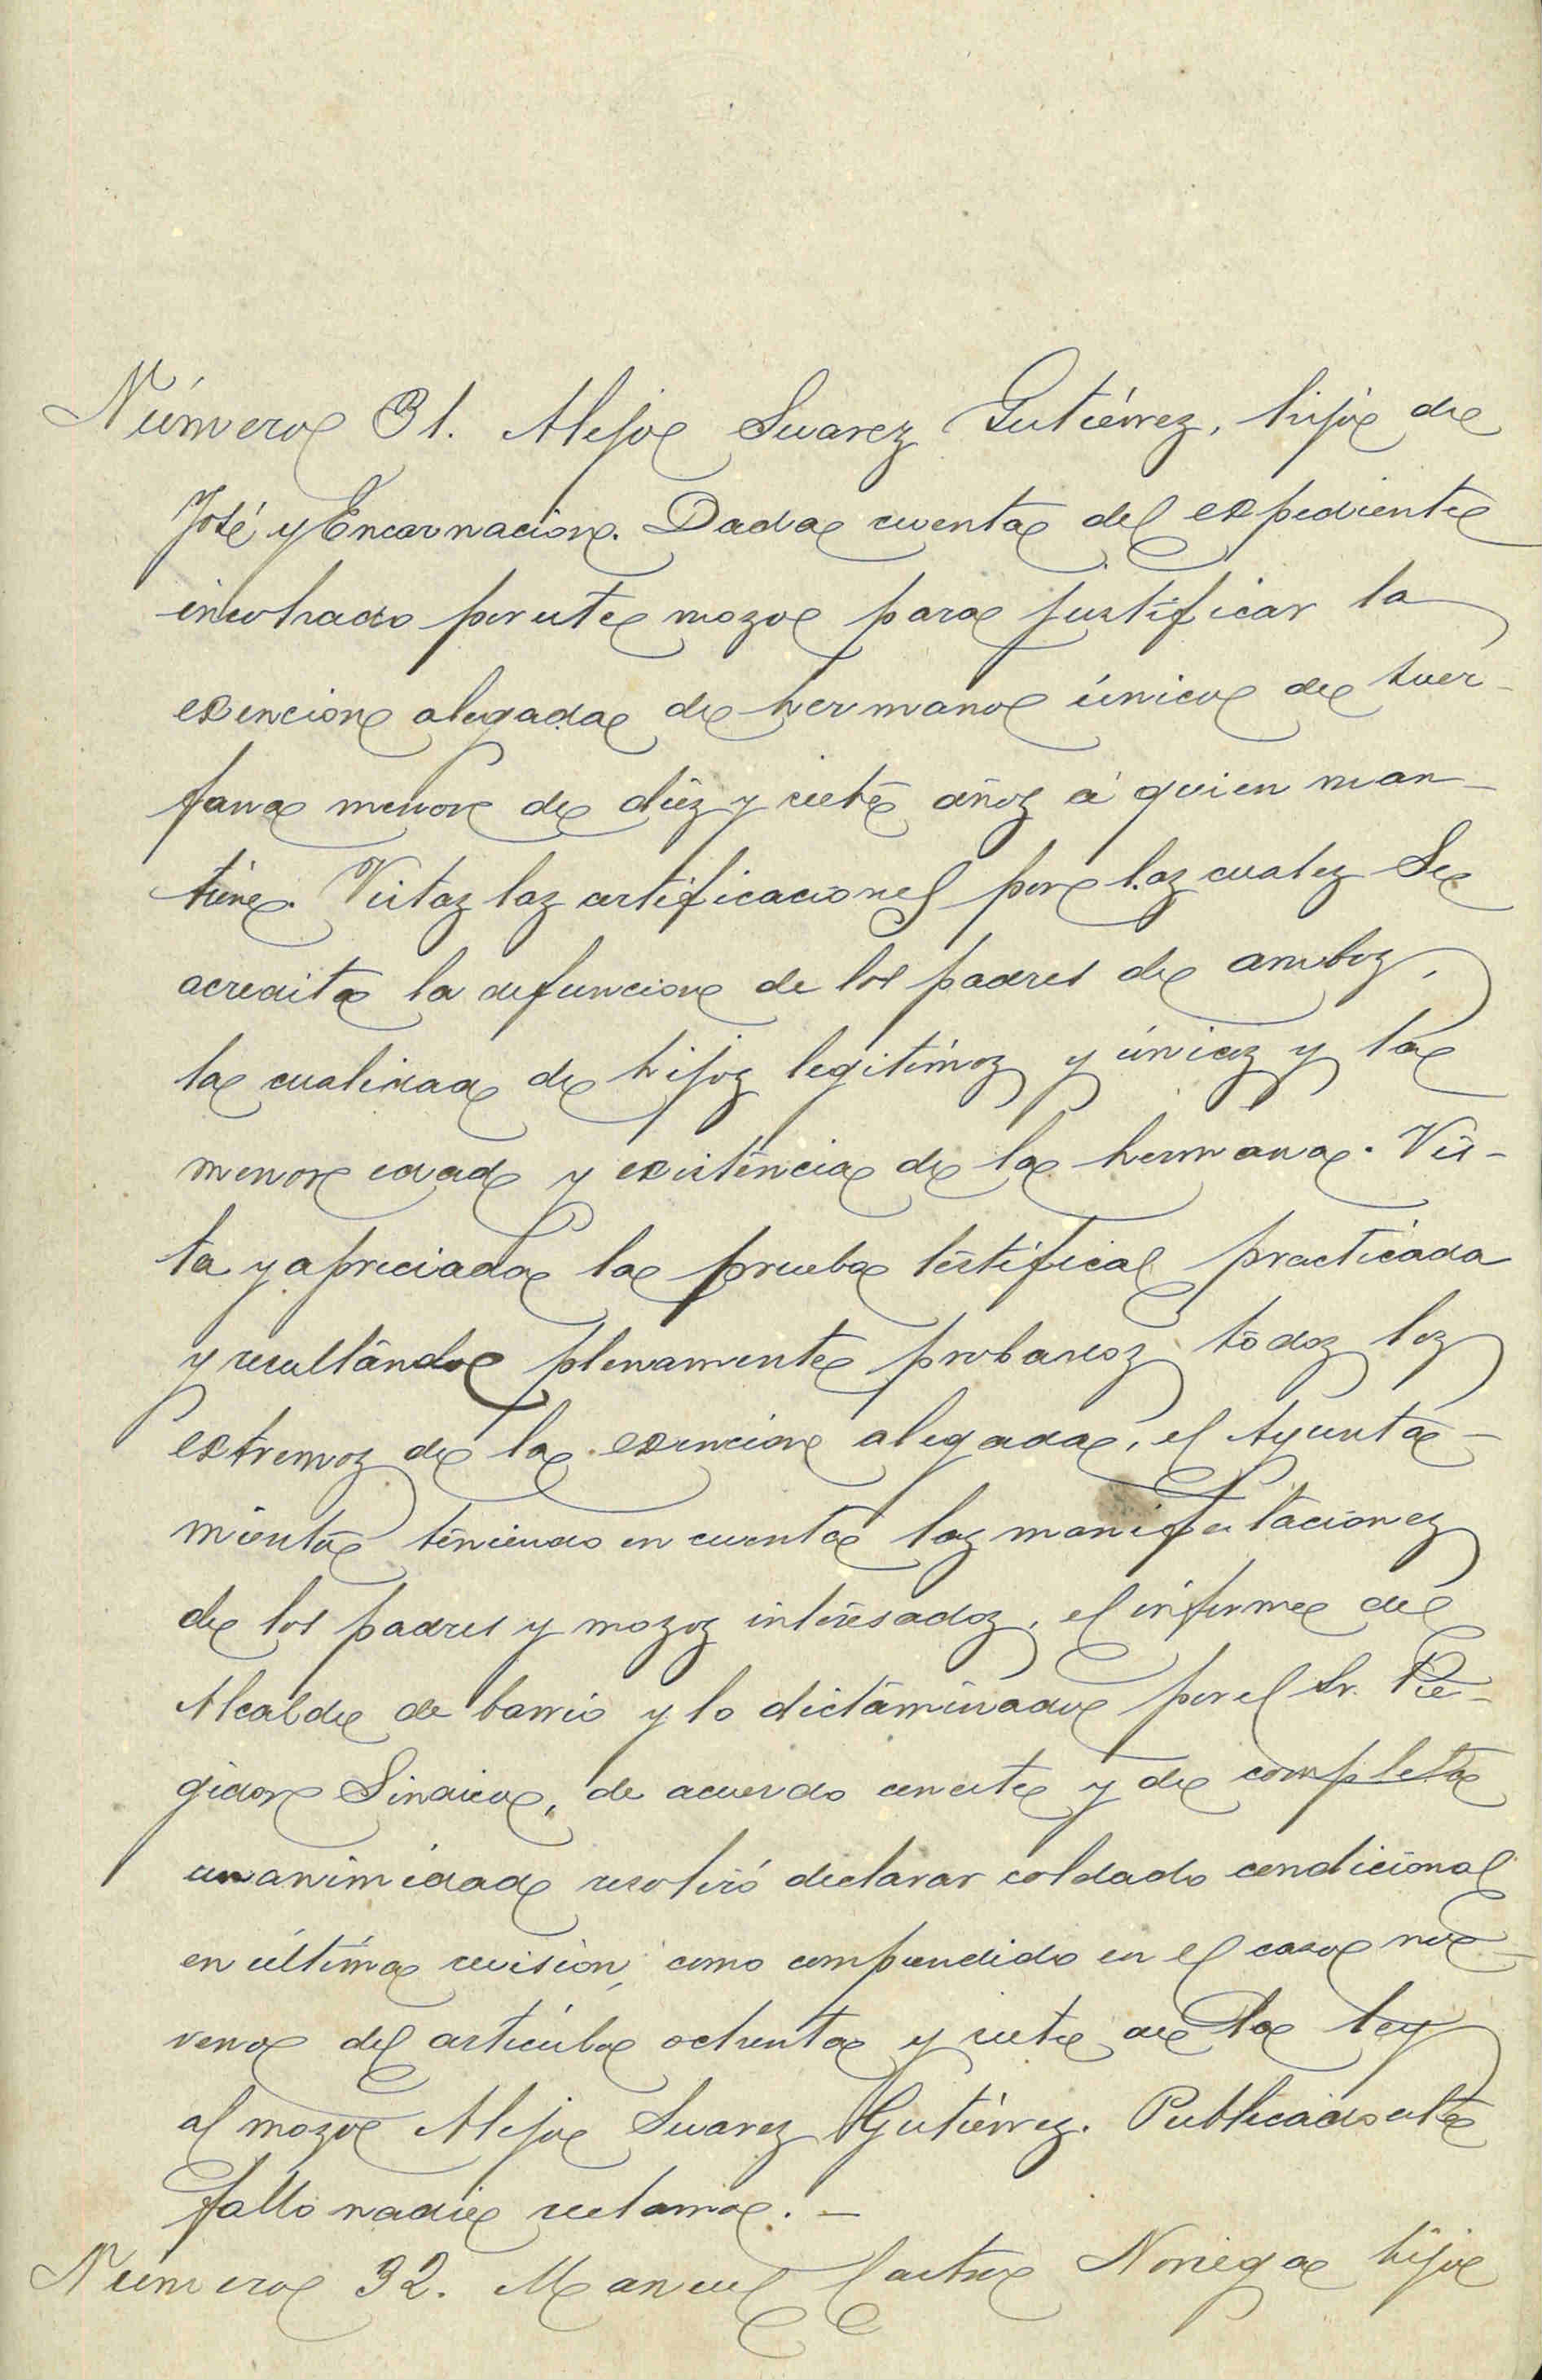 Número 31. Alejo Suarez Gutiérrez, hijo de
José y Encarnacion. Dada cuenta del expediente
incohado por este mozo para justificar la
exencion alegada de hermano único de huer-
fana menor de diez y siete años á quien man-
tiene. Vistas las certificaciones por las cuales se
acredita la defuncion de los padres de ambos,
la cualidad de hijos legitimos y únicos y la
menor edad y existencia de la hermana. Vis-
ta y apreciada la prueba testifical practicada
y resultando plenamente probados todos los
extremos de la exencion alegada, el Ayunta-
miento teniendo en cuenta las manifestaciones
de los padres y mozos interesados, el informe del
Alcalde de barrio y lo dictaminado por el Sr. Re-
gidor Sindico, de acuerdo con este y de completa
unanimidad resolvió declarar soldado condicional
en última revisión, como comprendido en el caso no-
veno del articulo ochenta y siete de la ley
al mozo Alejo Suarez Gutiérrez. Publicado este
fallo nadie reclamo. —
Número 32. Manuel Castro Noriega hijo